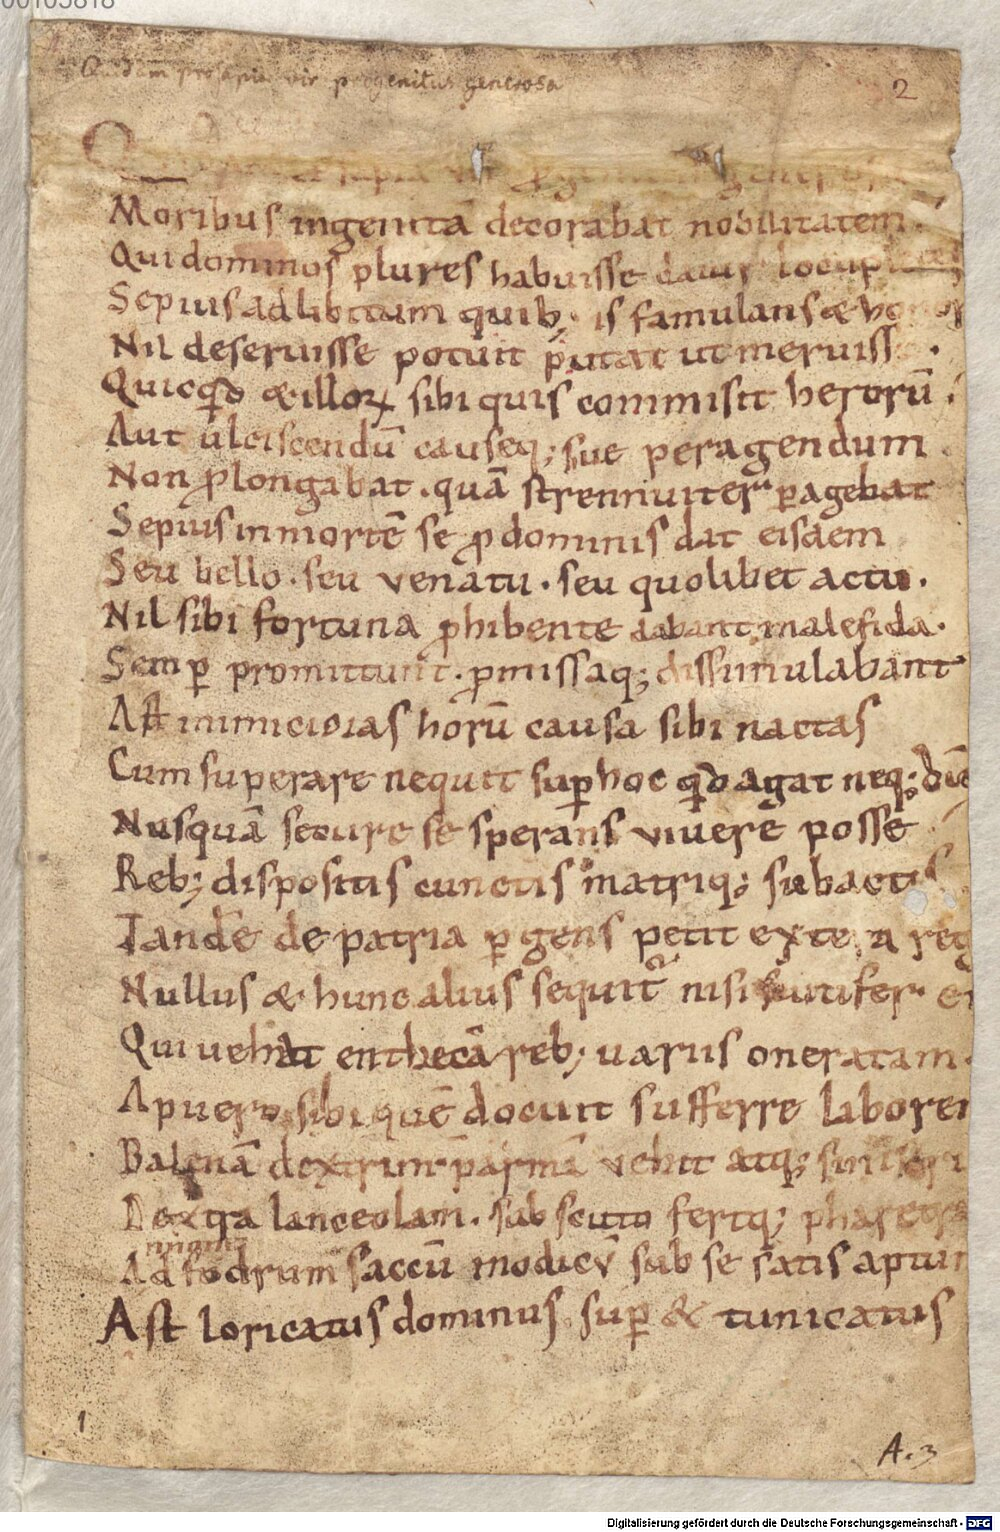 00103818
Quidam prosapia vir progenitus generosa
2
Moribus ingenita decorabat nobilitatem.
Qui dominos plures habuisse datur
Sepius ad libitum quib; is famulans &
Nil deseruisse potuit p̄utat ut meruiss
Quicq̄d & illoꝝ sibi quis commisit herorū
Aut ulciscendū causeq; sue peragendum
Non ꝓlongabat. quā strennuiter ꝑagebat
Sepius in mortē se ꝓ dominis dat eisdem
Seu bello. seu venatu. seu quolibet actu.
Nil sibi fortuna ꝓhibente dabant malefida.
Semꝑ promittunt. ꝓmissaq; dissimulabant
Ast inimicicias horū causa sibi nactas
Cum superare nequit suꝑ hoc q̄d agat neq;
Nusquā secure se sperans vivere posse
Reb; dispositis cunctis matriq; subactis
Tandē de patria ꝑgens petit
Nullus & hunc alius sequit᷑ nisi scutifer
Qui vehat enthecā reb; variis oneratam.
A puero sibi quē docuit sufferre
Balenā dextrim parmā vehit atq;
Dextra lanceolam. sub scuto fertq;
nigrum
Ad fodrum saccū modicū sub se satis
Ast loricatus dominus suꝑ & tunicatus
1
A. 3
Digitalisierung gefördert durch die Deutsche Forschungsgemeinschaft - DFG